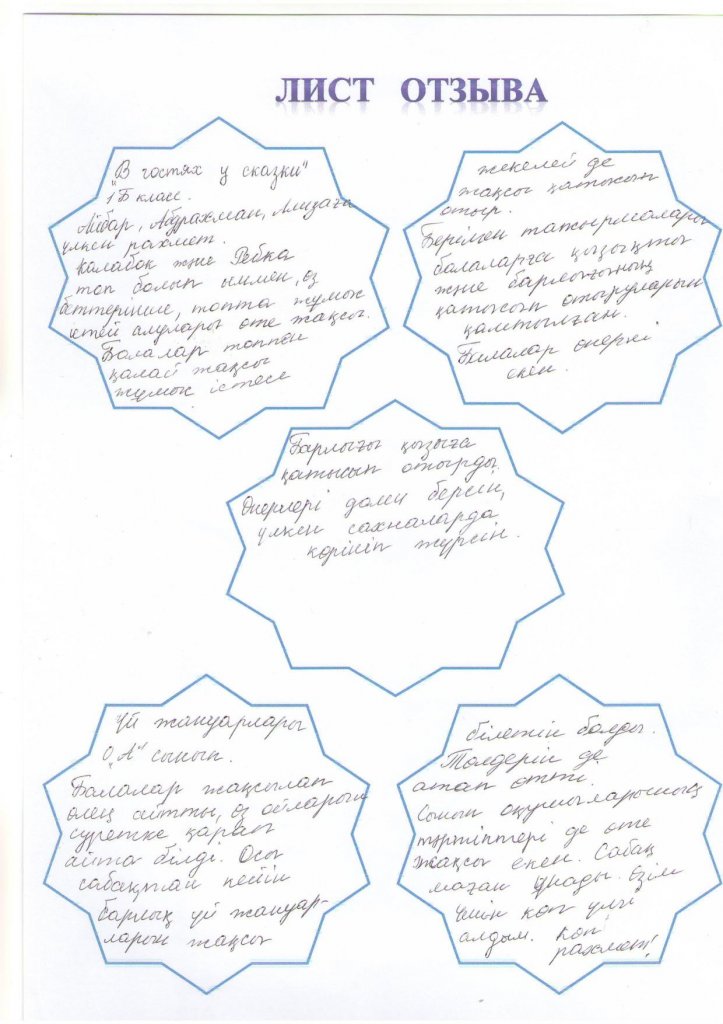 ЛИСТ ОТЗЫВА
"В гостях у сказки"
1 Б класс.
Айбар, Абдрахман, Ализаға
үлкен рахмет.
Калабок және Репка
топ болып ыммен, өз
беттерінше, топта жұмыс
істей алулары өте жақсы.
Балалар топпен
қалай жақсы
жұмыс істесе
жекелей де
жақсы қатысып
отыр.
Берілген тапсырмалары
балаларға қызықты
және барлығының
қатысып отыруларын
қамтылған.
Балалар өнерлі
екен.
Барлығы қызыға
қатысып отырды.
Өнерлері дами берсін,
үлкен сахналарда
көрініп жүрсін.
Үй жануарлары
0 "А" сынып.
Балалар жақсылап
өлең айтты, өз ойларын
суретке қарап
айта білді. Осы
сабақтан кейін
барлық үй жануар-
ларын жақсы
білетін болды.
Төлдерін де
атап өтті.
Сынып оқушыларының
тәртіптері де өте
жақсы екен. Сабақ
маған ұнады. Өзім
үшін көп үлгі
алдым. Көп
рахмет!